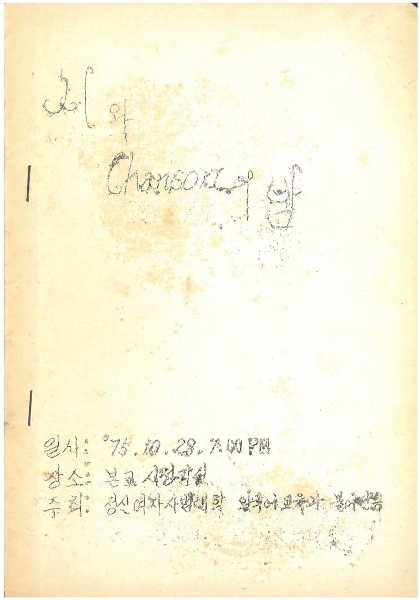 시와
Chanson의 밤
일시: '75.10.28.7:00 PM
장소: 본교 시청각실
주최: 성신여자사범대학 외국어교육과 불어전공